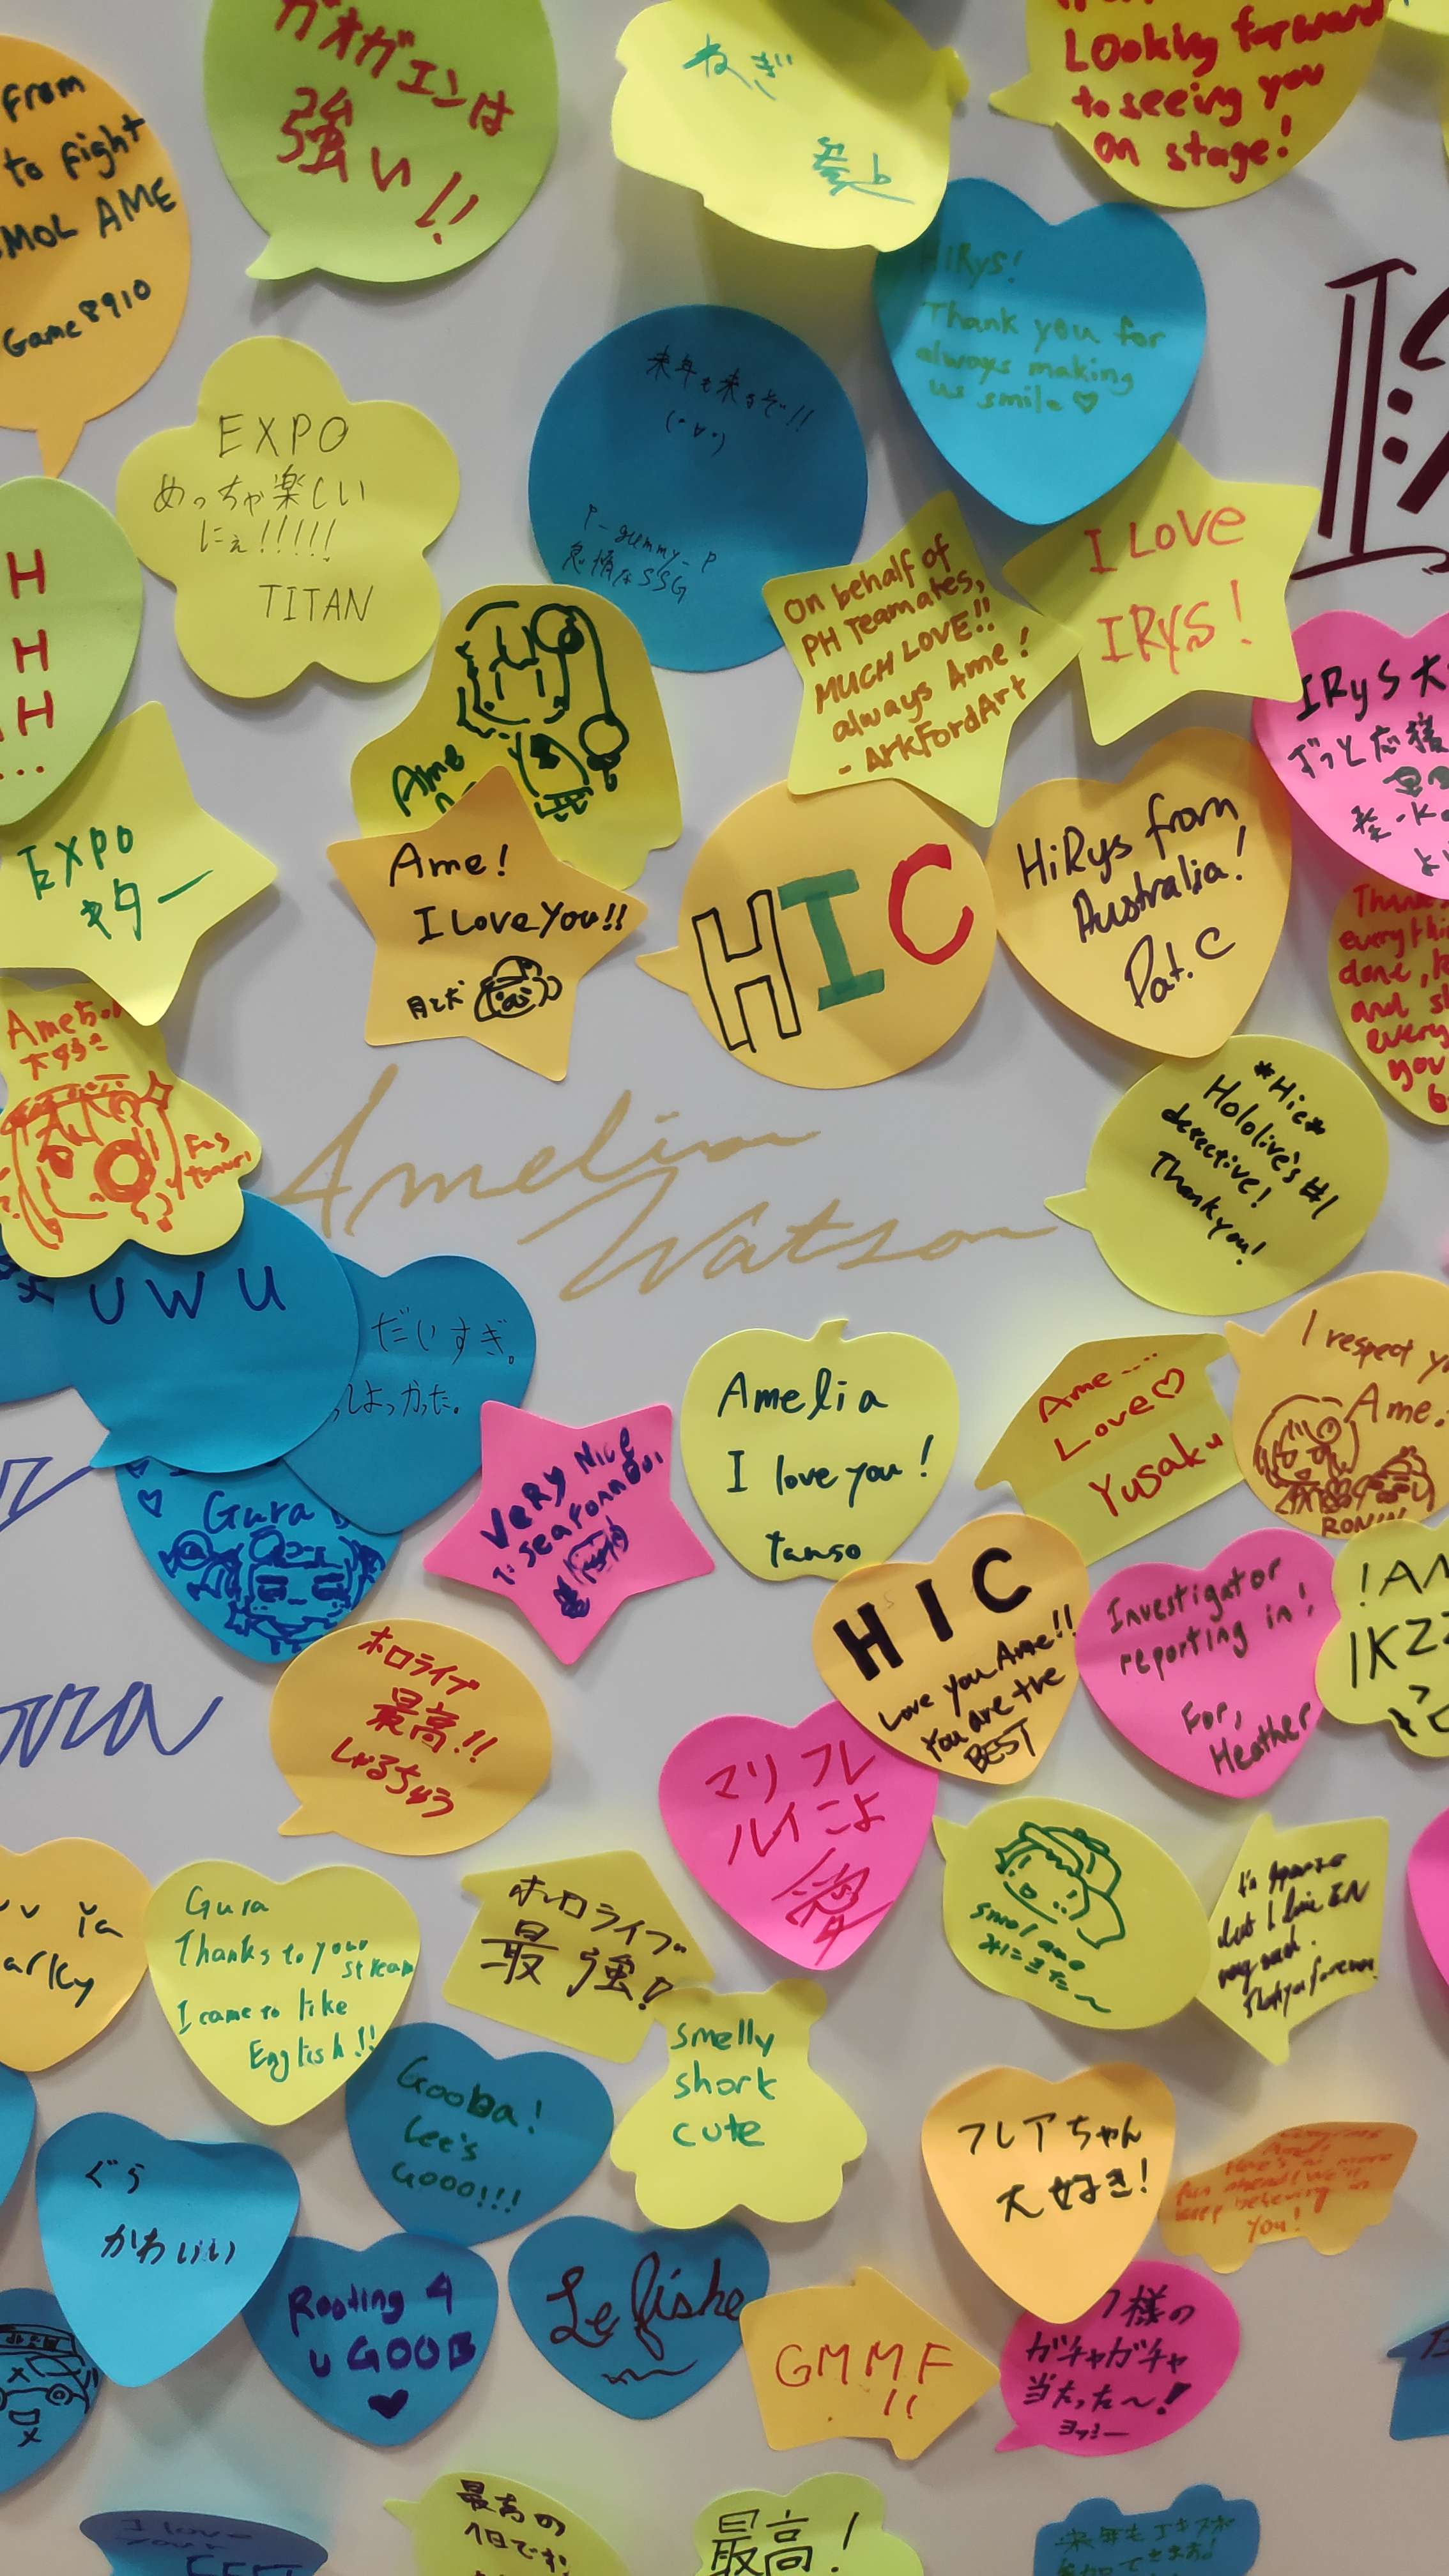 from
to fight
SMOL AME
Game8910
ガオガエンは
強い!!
ねぎ
Looking forward
to seeing you
on stage!
HiRys!
Thank you for
always making
us smile ♡
来年も来るぞ!!
P-gummy-P
怠惰なSSG
EXPO
めっちゃ楽しい
にぇ!!!!!
TITAN
H
H
H
On behalf of
PH Teamates,
MUCH LOVE!!
always Ame!
- ArkFordArt
I LOVE
IRyS!
IRyS 大
ずっと応援
Ame
EXPO
キター
Ame!
I Love You!!
HIC
HiRys from
Australia!
Pat. C
everythi
done,
and
every
you
*Hic*
Hololive's #1
detective!
Thank you!
Ameちゃん
大好き
Amelia
Watson
U W U
だいすぎ。
しよかった。
Gura
Very Nice
Amelia
I love you!
tanso
Ame....
Love♡
Yusaku
I respect
Ame.
RONIN
ホロライブ
最高!!
しゃるちゅう
HIC
Love you Ame!!
You are the
BEST
Investigator
reporting in!
For,
Heather
マリフレ
ルイこよ
愛
Gura
Thanks to your
stream
I came to like
English!!
ホロライブ
最強!
smol ame
みにきた〜
but I love EN
very much.
Gooba!
Let's
Gooo!!!
smelly
short
cute
フレアちゃん
大好き!
ぐら
かわいい
keep believing in
you!
Rooting 4
u GOOB
Le fishe
GMMF
!!
様の
ガチャガチャ
当たった〜!
I love
最高の
1日です
最高!